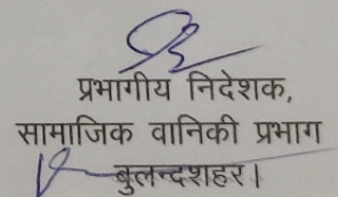 प्रभागीय निदेशक,
सामाजिक वानिकी प्रभाग
बुलन्दशहर।